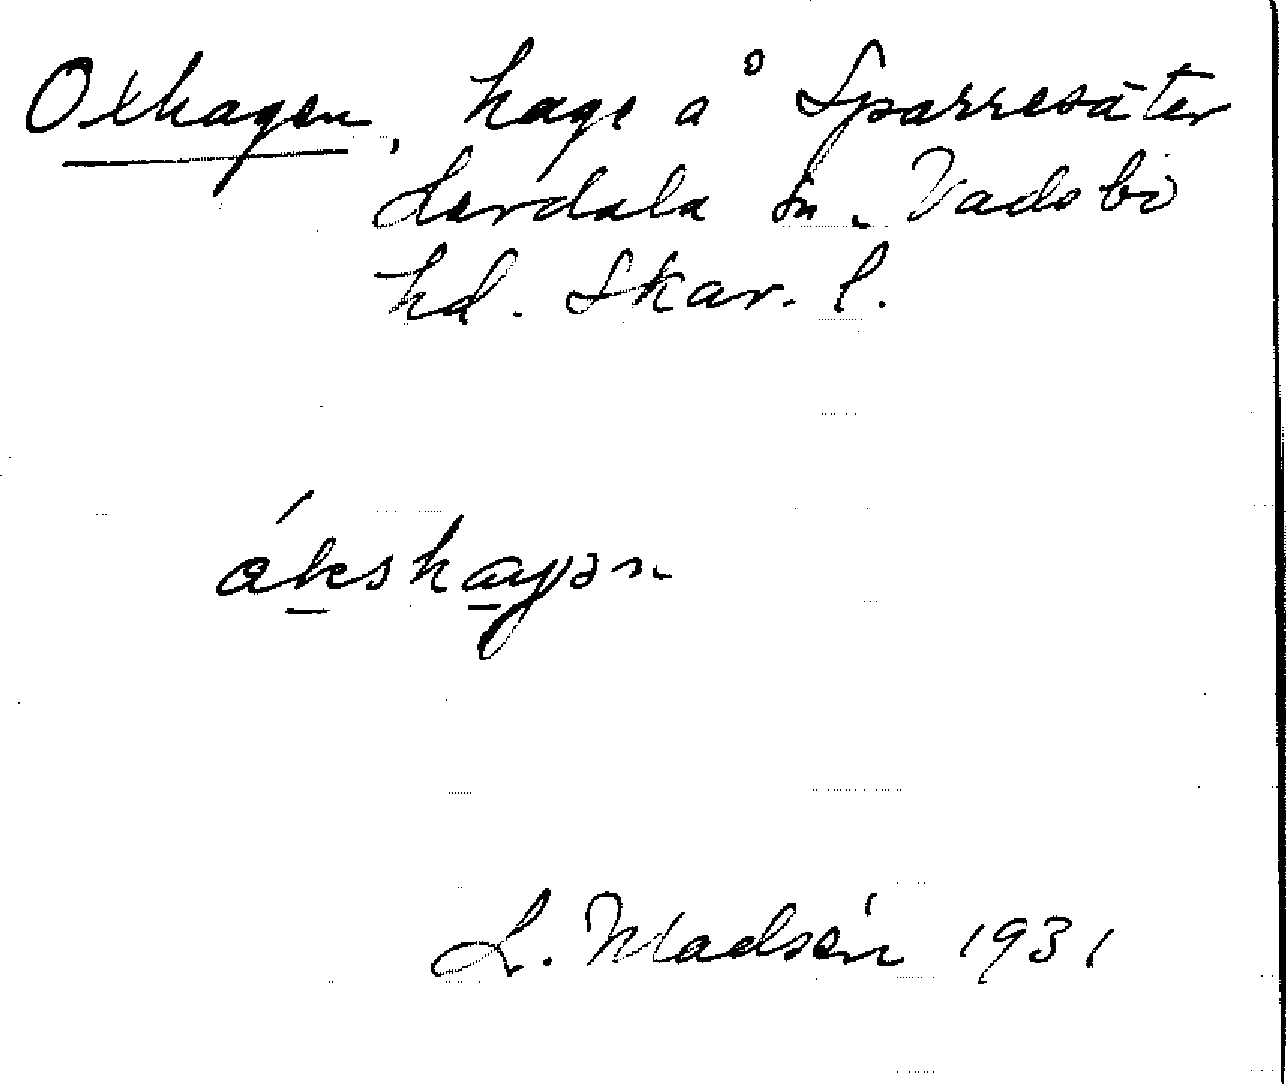 Oxhagen, hage å Sparresäter
Lerdala sn. Vadsbo
hd. Skar. l.
ákshaγən
L. Madsén 1931